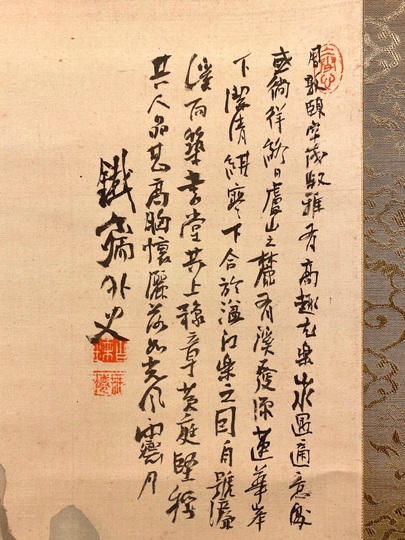 周敦頤字茂叔雅有高趣尤樂山水遇適意處
或徜徉終日廬山之麓有溪發源蓮華峯
下潔清紺寒下合於湓江樂之因自號濂
溪而築書堂其上豫章黃庭堅稱
其人品甚高胸懷灑落如光風霽月
鐵齋外史